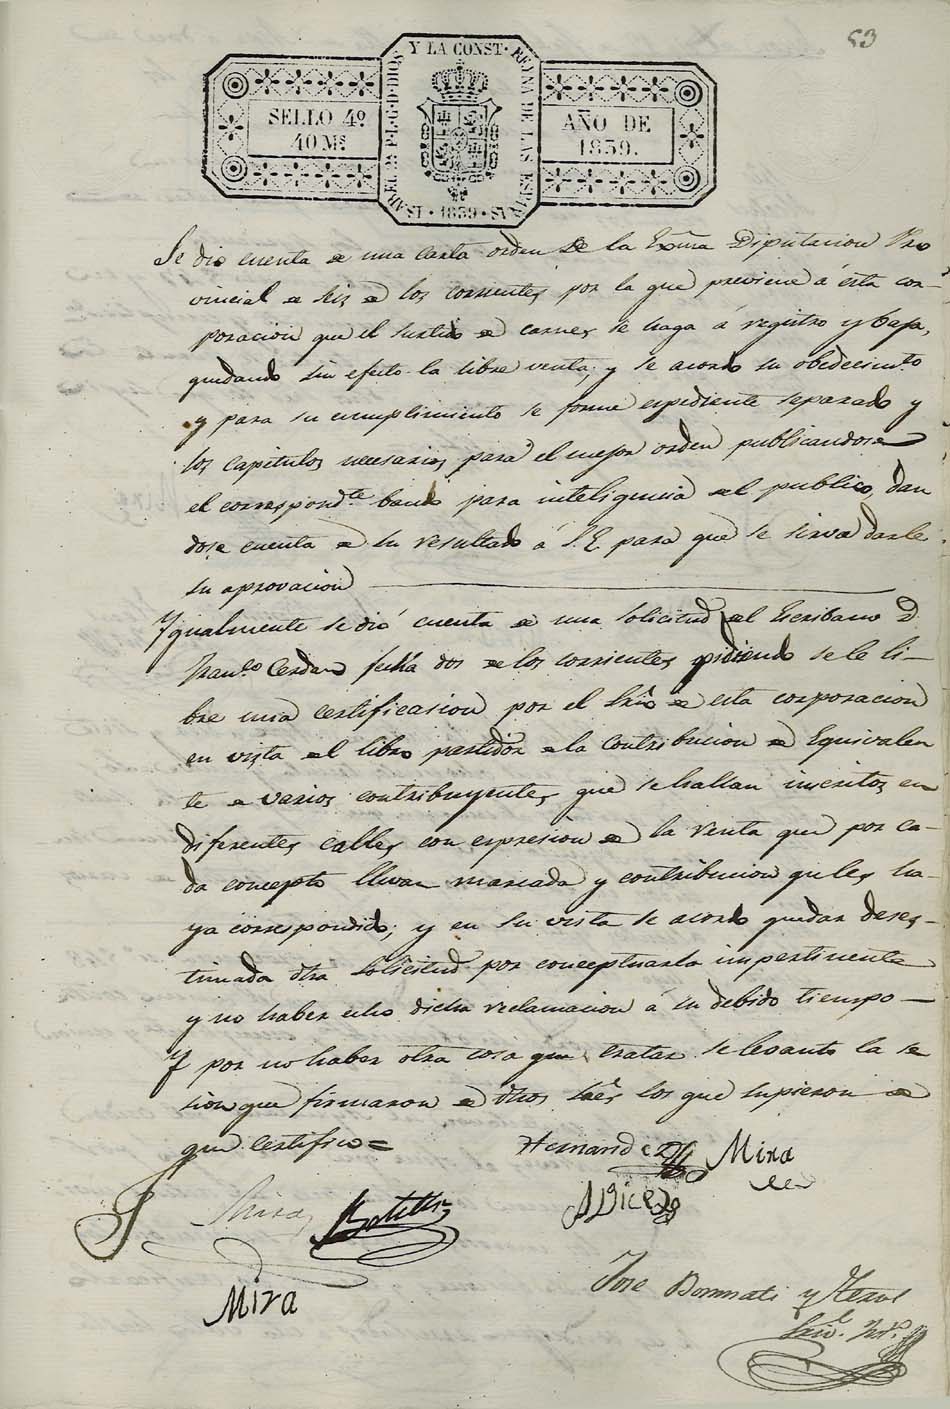 53
SELLO 4º
40 Mˢ
ISABEL 2ª P. L. G. D. DIOS Y LA CONST. REYNA DE LAS ESPAÑAS · 1839 ·
AÑO DE
1839.
Se dio cuenta de una carta orden de la Exma Diputacion Pro
vincial de seis de los corrientes por la que previene á ésta cor-
poracion que el surtido de carnes se haga á registro y baja,
quedando sin efecto la libre venta; y se acordo su obedecimto
y para su cumplimiento se forme espediente separado y
los capitulos necesarios para el mejor orden publicandose
el correspondte bando para inteligencia del publico, dan
dose cuenta de su resultado á S. E. para que se sirva darle
su aprovacion
Ygualmente se dió cuenta de una solicitud del Escribano D.
Franco Cerdan fecha dos de los corrientes pidiendo se le li-
bre una certificacion por el Srio de esta corporacion
en vista del libro partidor de la Contribucion de Equivalen
te de varios contribuyentes que se hallan inscritos en
diferentes calles con espresion de la renta que por ca-
da concepto llevan marcada y contribucion que les ha-
ya correspondido; y en su vista se acordo quedar deses-
timada dha solicitud por conceptuarla impertinente
y no haber echo dicha reclamacion á su debido tiempo
Y por no haber otra cosa que tratar se levanto la se
sion que firmaron de dhos Sres los que supieron de
que certifico =
Hernandez Mira
Mira Botella
Mira
Jose Bornnati y
Srio.